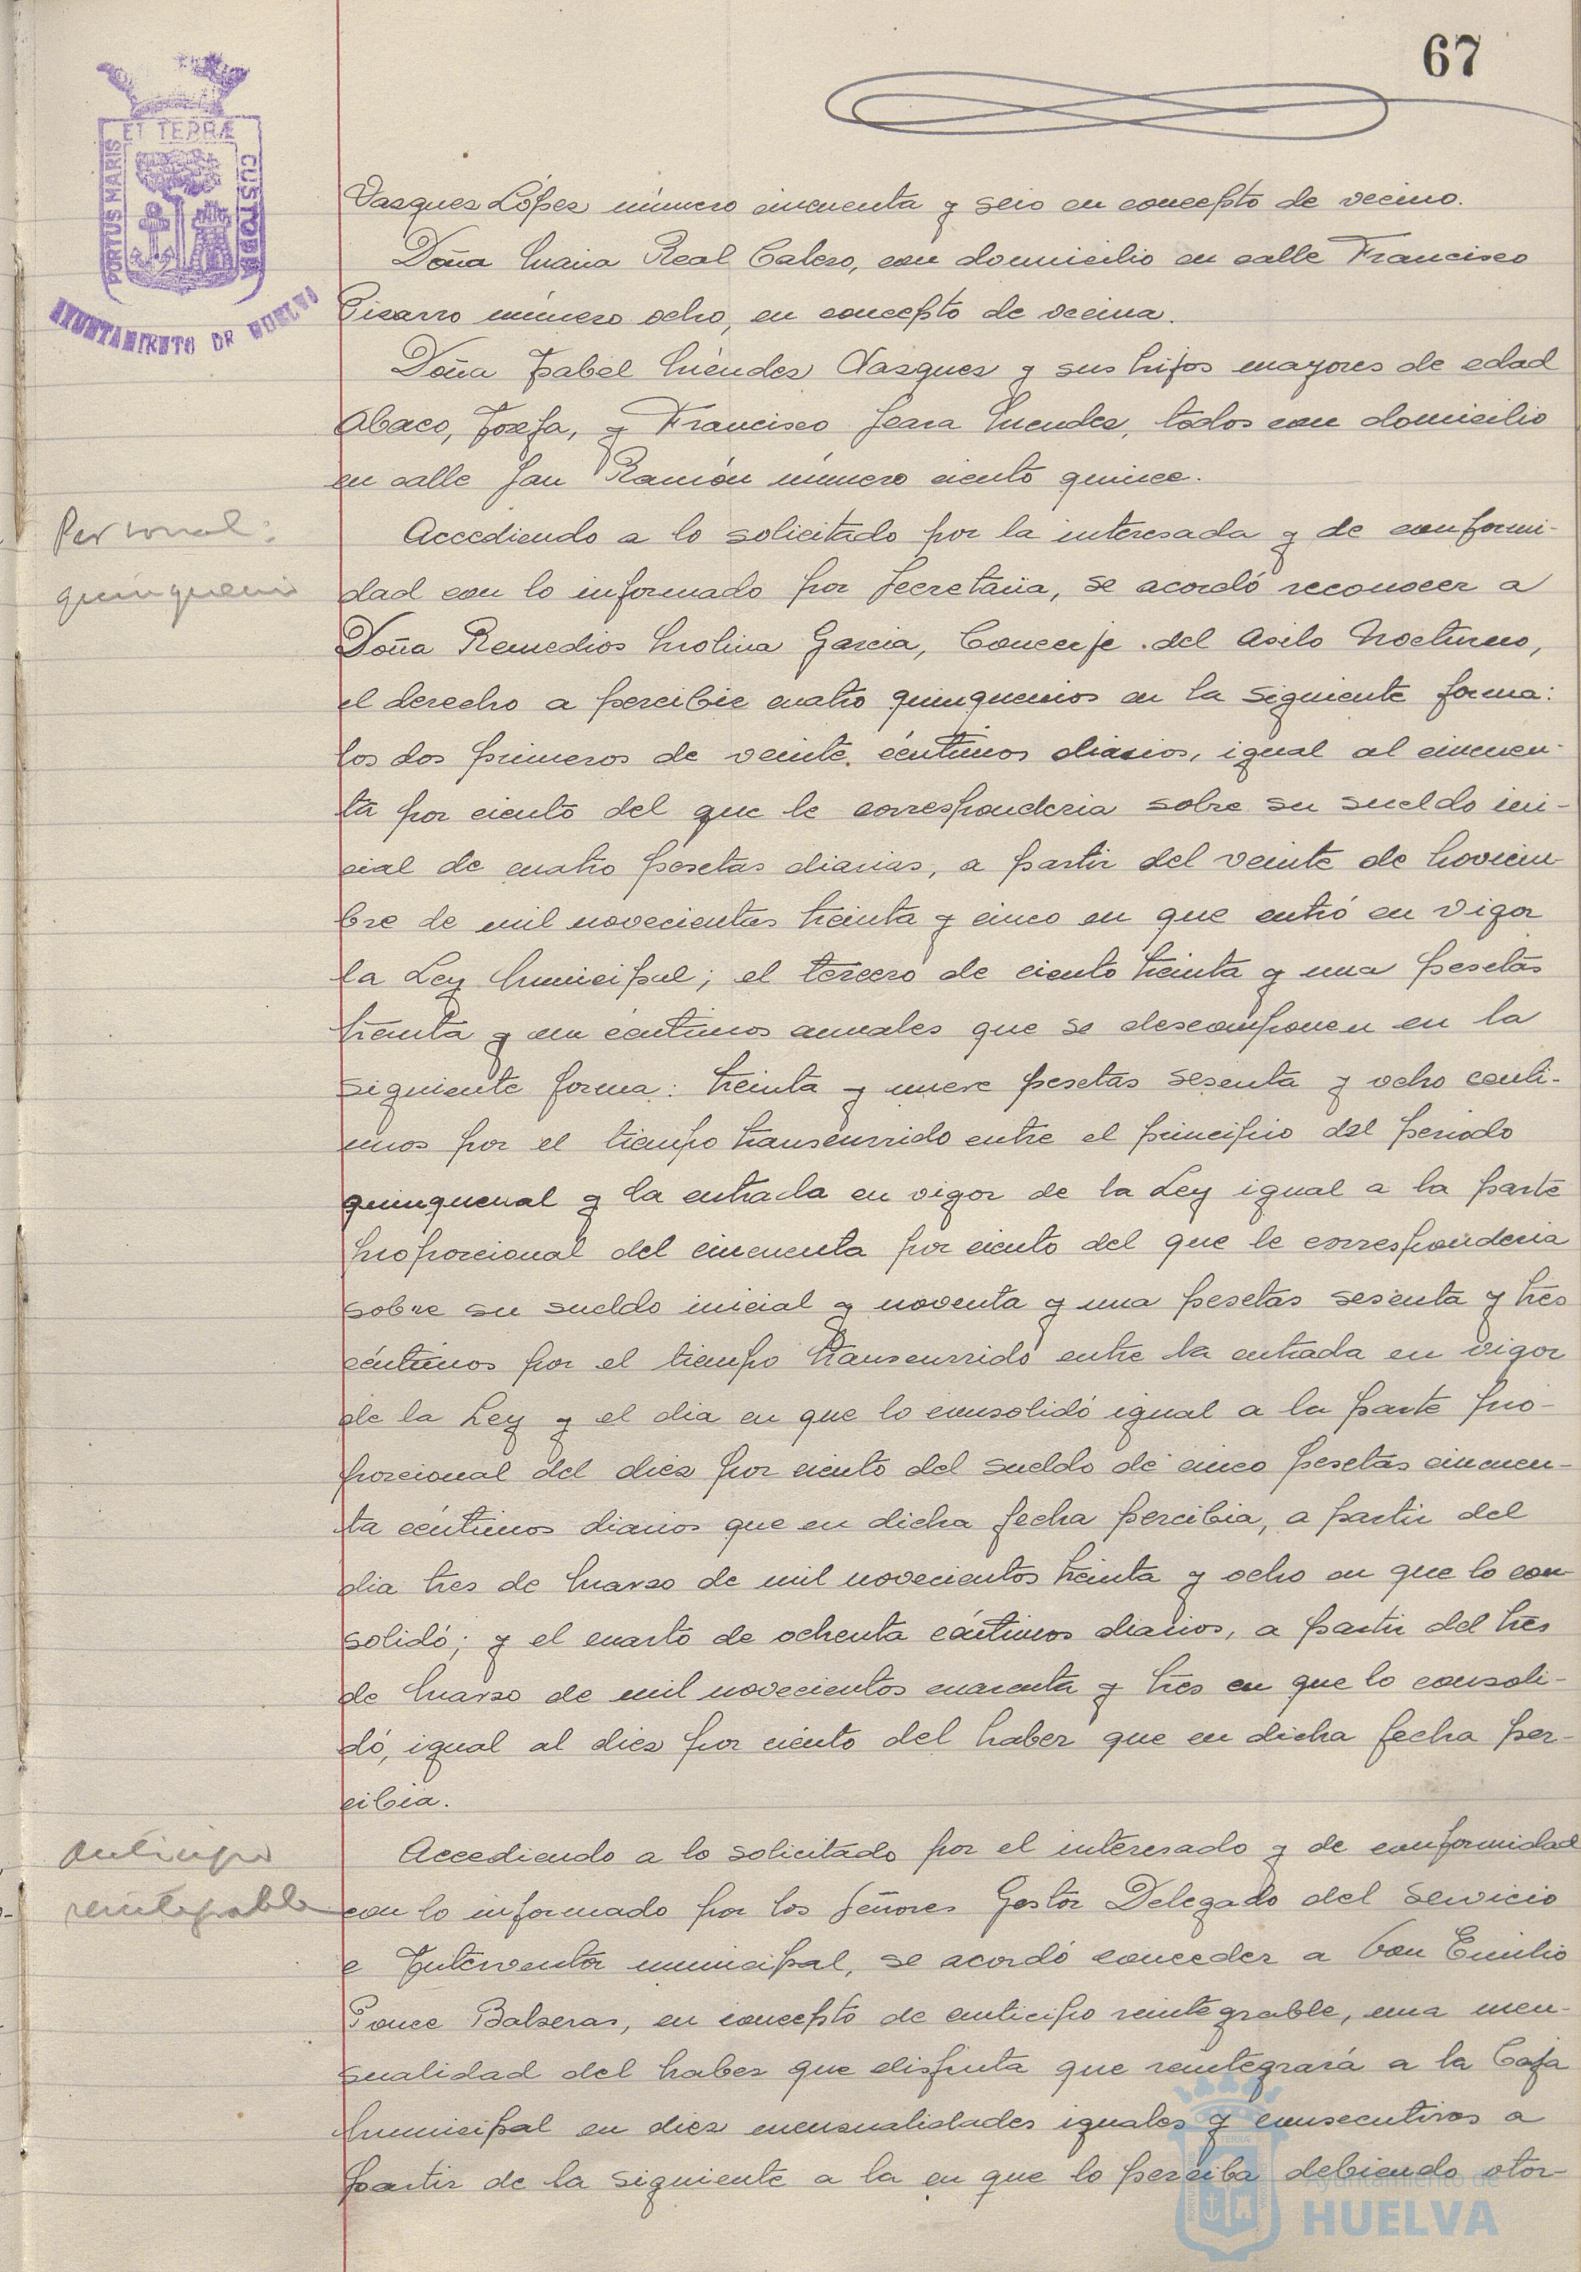 67
ET TERRÆ
PORTUS MARIS
CUSTODIA
AYUNTAMIENTO DE HUELVA
Vasques López número cincuenta y seis en concepto de vecino.
Doña Maria Real Calero, con domicilio en calle Francisco
Pizarro número ocho, en concepto de vecina.
Doña Isabel Méndez Vasques y sus hijos mayores de edad
Josefa, y Francisco Mendez, todos con domicilio
en calle San Ramón número ciento quince.
Personal:
quinquenio
Accediendo a lo solicitado por la interesada y de conformi-
dad con lo informado por Secretaria, se acordó reconocer a
Doña Remedios Molina Garcia, Conserje del Asilo Nocturno,
el derecho a percibir cuatro quinquenios en la siguiente forma:
los dos primeros de veinte céntimos diarios, igual al cincuen-
ta por ciento del que le corresponderia sobre su sueldo ini-
cial de cuatro pesetas diarias, a partir del veinte de Noviem-
bre de mil novecientos treinta y cinco en que entró en vigor
la Ley Municipal; el tercero de ciento treinta y una pesetas
treinta y un céntimos anuales que se descomponen en la
siguiente forma: treinta y nueve pesetas sesenta y ocho cénti-
mos por el tiempo transcurrido entre el principio del periodo
quinquenal y la entrada en vigor de la Ley igual a la parte
proporcional del cincuenta por ciento del que le corresponderia
sobre su sueldo inicial y noventa y una pesetas sesenta y tres
céntimos por el tiempo transcurrido entre la entrada en vigor
de la Ley y el dia en que lo consolidó igual a la parte pro-
porcional del diez por ciento del sueldo de cinco pesetas cincuen-
ta céntimos diarios que en dicha fecha percibia, a partir del
dia tres de Marzo de mil novecientos treinta y ocho en que lo con-
solidó; y el cuarto de ochenta céntimos diarios, a partir del tres
de Marzo de mil novecientos cuarenta y tres en que lo consoli-
dó, igual al diez por ciento del haber que en dicha fecha per-
cibia.
Anticipo
reintegrable
Accediendo a lo solicitado por el interesado y de conformidad
con lo informado por los Señores Gestor Delegado del Servicio
e Interventor municipal, se acordó conceder a Don Emilio
Ponce Balseras, en concepto de anticipo reintegrable, una men-
sualidad del haber que disfruta que reintegrará a la Caja
Municipal en diez mensualidades iguales y consecutivas a
partir de la siguiente a la en que lo perciba debiendo otor-
Ayuntamiento de
HUELVA